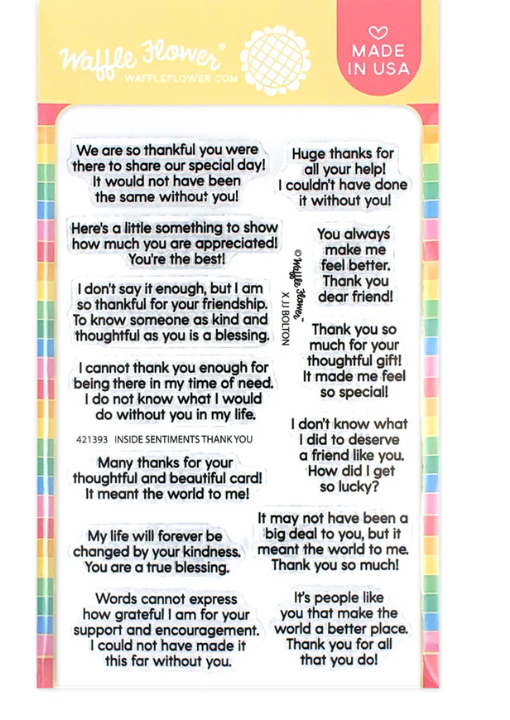 Waffle Flower®
WAFFLEFLOWER.COM
MADE
IN USA
We are so thankful you were
there to share our special day!
It would not have been
the same without you!
Here's a little something to show
how much you are appreciated!
You're the best!
I don't say it enough, but I am
so thankful for your friendship.
To know someone as kind and
thoughtful as you is a blessing.
I cannot thank you enough for
being there in my time of need.
I do not know what I would
do without you in my life.
421393 INSIDE SENTIMENTS THANK YOU
Many thanks for your
thoughtful and beautiful card!
It meant the world to me!
My life will forever be
changed by your kindness.
You are a true blessing.
Words cannot express
how grateful I am for your
support and encouragement.
I could not have made it
this far without you.
Huge thanks for
all your help!
I couldn't have done
it without you!
You always
make me
feel better.
Thank you
dear friend!
©Waffle Flower™
X JJ BOLTON
Thank you so
much for your
thoughtful gift!
It made me feel
so special!
I don't know what
I did to deserve
a friend like you.
How did I get
so lucky?
It may not have been a
big deal to you, but it
meant the world to me.
Thank you so much!
It's people like
you that make the
world a better place.
Thank you for all
that you do!